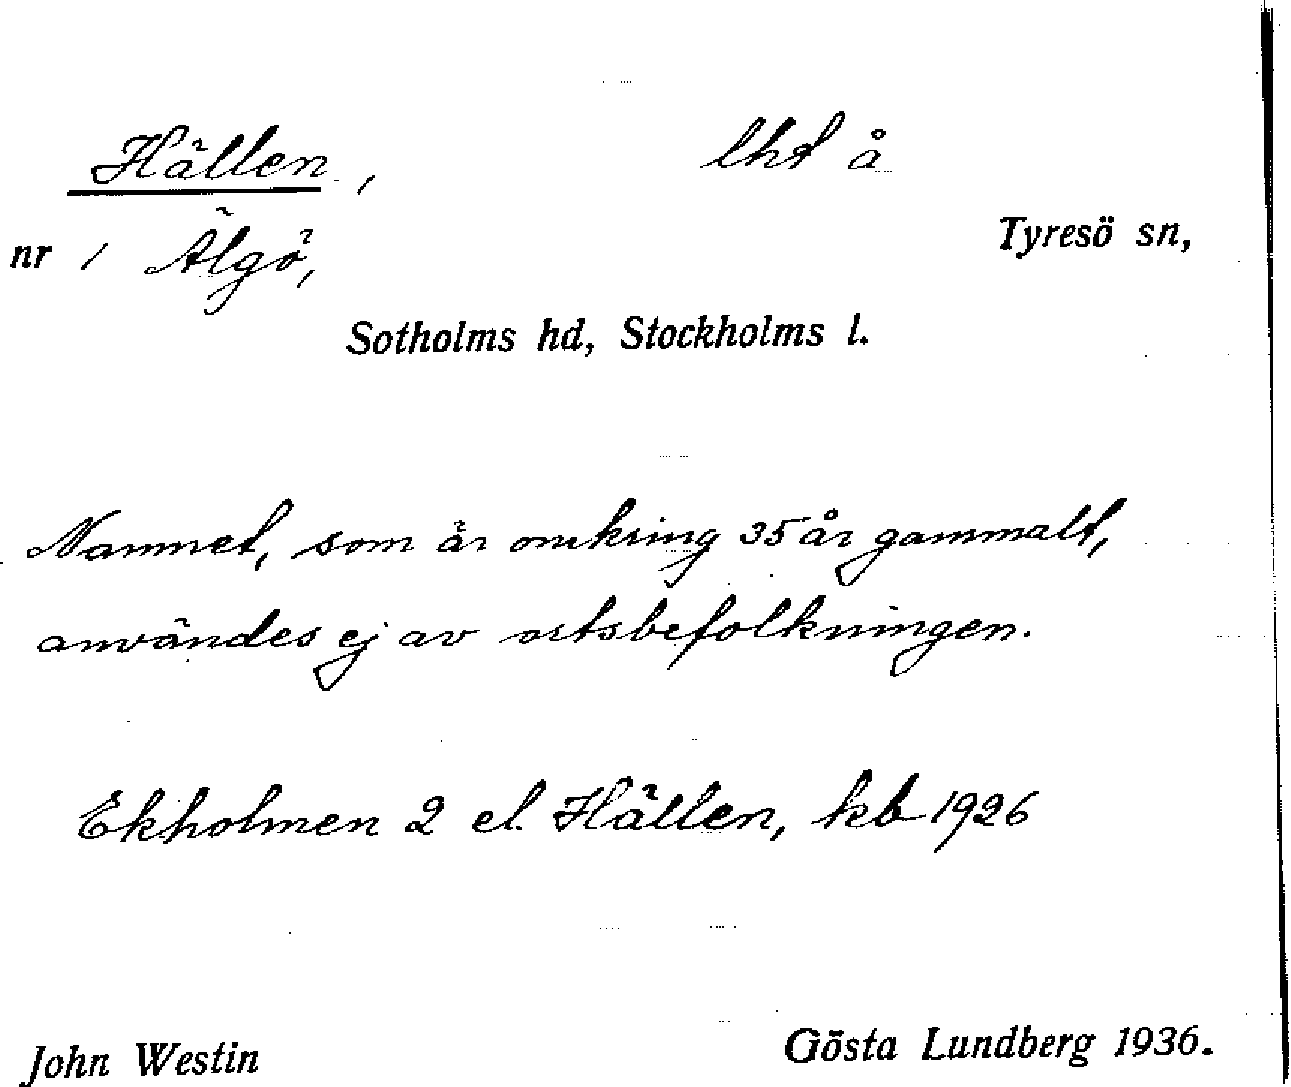 Hällen, lht å
nr 1 Älgö, Tyresö sn,
Sotholms hd, Stockholms l.
Namnet, som är omkring 35 år gammalt,
användes ej av ortsbefolkningen.
Ekholmen 2 el. Hällen, kb 1926
John Westin Gösta Lundberg 1936.